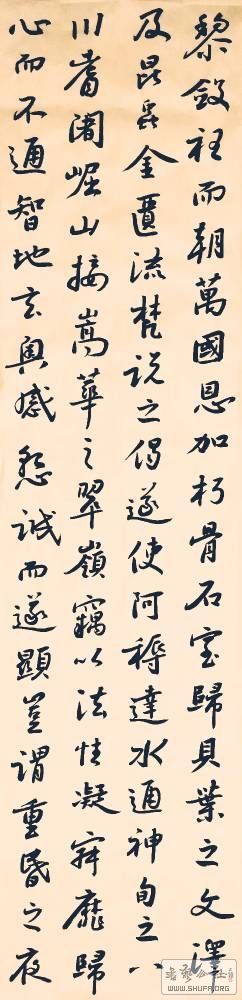 黎斂衽而朝萬國恩加朽骨石室歸貝葉之文澤
及昆蟲金匱流梵說之偈遂使阿耨達水通神甸之八
川耆闍崛山接嵩華之翠嶺竊以法性凝寂靡歸
心而不通智地玄奧感懇誠而遂顯豈謂重昏之夜
WWW.SHUFA.ORG